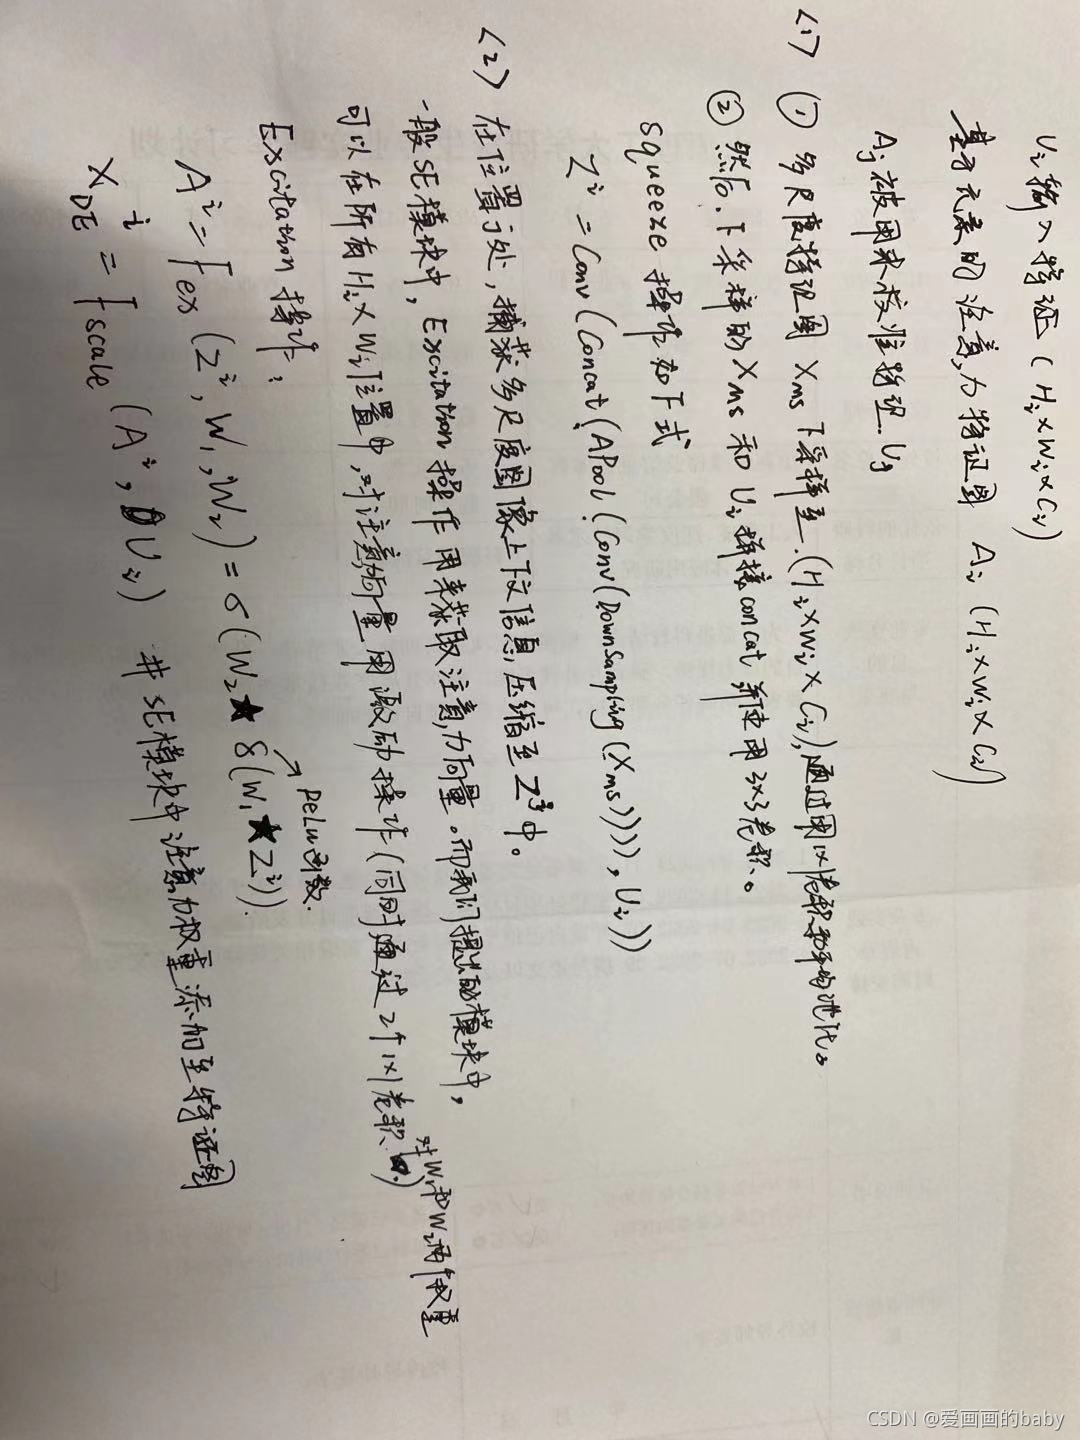 Ui 输入特征 (Hi×Wi×Ci)
基于元素的注意力特征图 Ai (Hi×Wi×Ci)
Aj被用来校准特征 Uj
<1> ① 多尺度特征图 Xms 下采样至 (Hi×Wi×Ci), 通过用1×1卷积和平均池化。
② 然后, 下采样的Xms 和 Ui 拼接concat, 并使用 3×3卷积。
squeeze 操作如下式
Z^i = Conv(Concat(APool(Conv(DownSampling(Xms)))), Ui)))
<2> 在位置j处, 捕获多尺度图像上下文信息, 压缩至Z^j中。
一般SE模块中, Excitation 操作 用来获取注意力向量。而我们提出的模块中,
可以在所有Hi×Wi位置中, 对注意向量 用激励操作(同时通过2个1×1卷积)
对W1和W2两个权重
Excitation 操作:
A^i = Fex (Z^i, W1, W2) = σ(W2★δ(W1★Z^i)).
ReLu函数.
X^i_DE = Fscale (A^i, Ui) # SE模块中注意力权重添加至特征图
CSDN @爱画画的baby